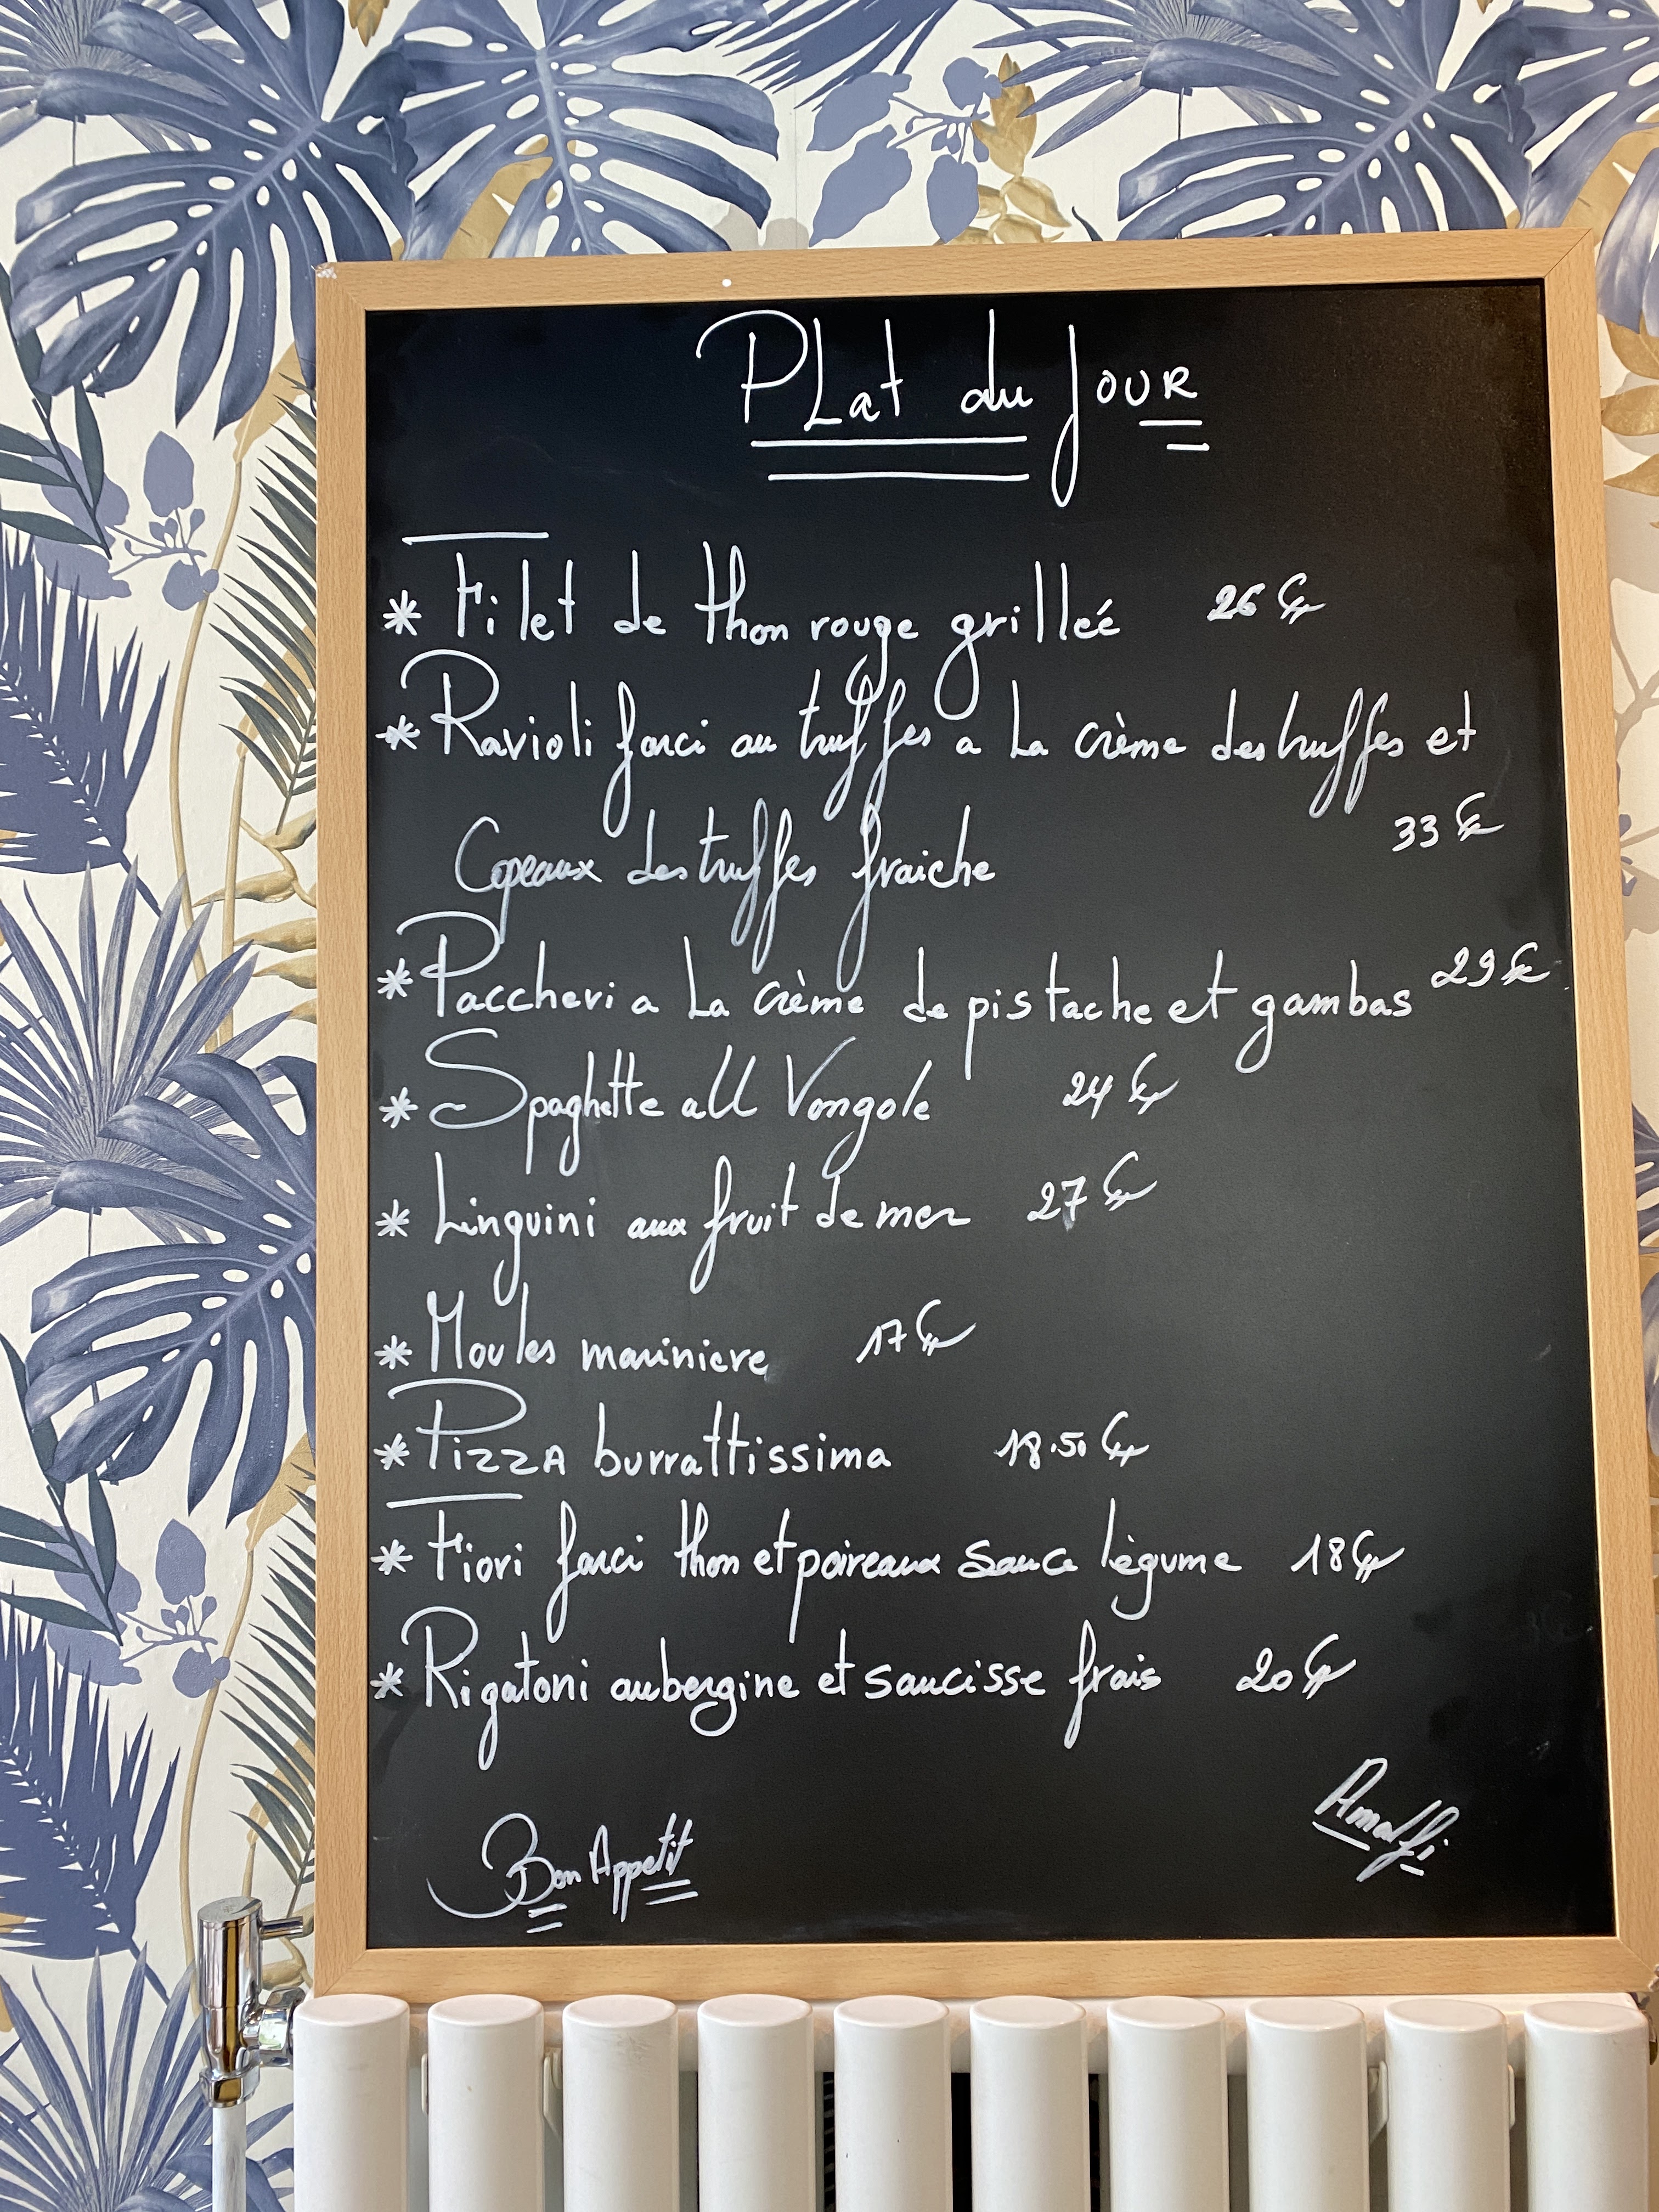 PLat du jOUR
* Filet de thon rouge grilleé 26 €
* Ravioli farci au truffes a La crème des truffes et
Copeaux des truffes fraiche 33 €
* Paccheri a La crème de pistache et gambas 29 €
* Spaghette all Vongole 24 €
* Linguini aux fruit de mer 27 €
* Moules mariniere 17 €
* PizzA burrattissima 18.50 €
* Fiori farci thon et poireaux sauce lègume 18 €
* Rigatoni aubergine et saucisse frais 20 €
Amalfi
Bon Appetit